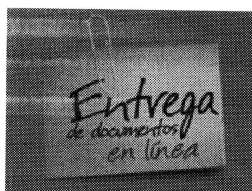 Entrega
de documentos
en línea